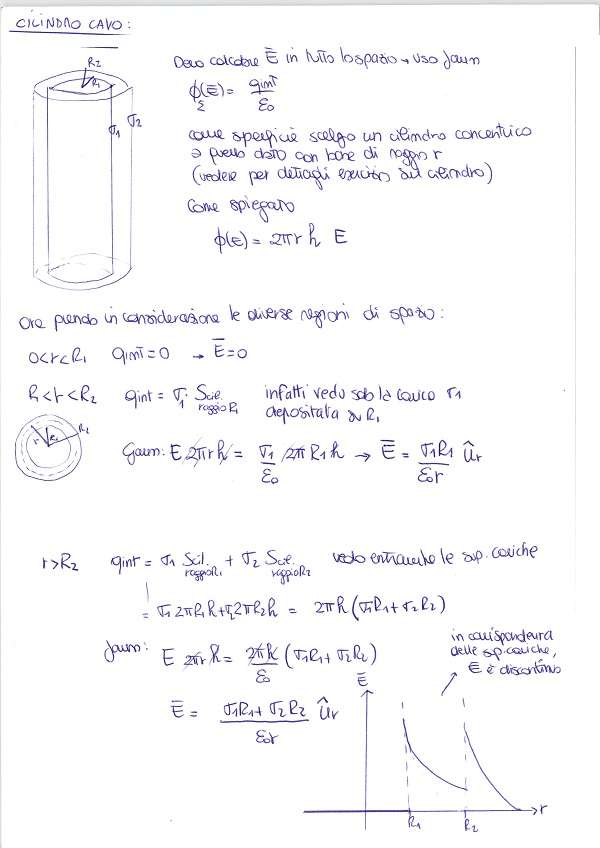 CILINDRO CAVO:
R2
R1
σ1 σ2
Devo calcolare E̅ in tutto lo spazio → uso Gauss
ϕ_Σ(E̅) = qint/ε0
come superficie scelgo un cilindro concentrico
a quello dato con base di raggio r
(vedere per dettagli esercizio sul cilindro)
Come spiegato
ϕ(E) = 2πr h E
Ora prendo in considerazione le diverse regioni di spazio:
0<r<R1 qint = 0 → E̅ = 0
R1<r<R2 qint = σ1 Scil. raggio R1 infatti vedo solo la carica σ1
depositata su R1
r R1 R2
Gauss: E 2πrh = σ1/ε0 2πR1h → E̅ = σ1R1/ε0r ûr
r>R2 qint = σ1 Scil. raggio R1 + σ2 Scil. raggio R2 vedo entrambe le sup. cariche
= σ1 2πR1h + σ2 2πR2h = 2πh (σ1R1 + σ2R2)
Gauss: E 2πrh = 2πh/ε0 (σ1R1 + σ2R2)
E̅ = σ1R1 + σ2R2/ε0r ûr
in corrispondenza
delle sup. cariche,
E è discontinuo
E̅
R1 R2 r